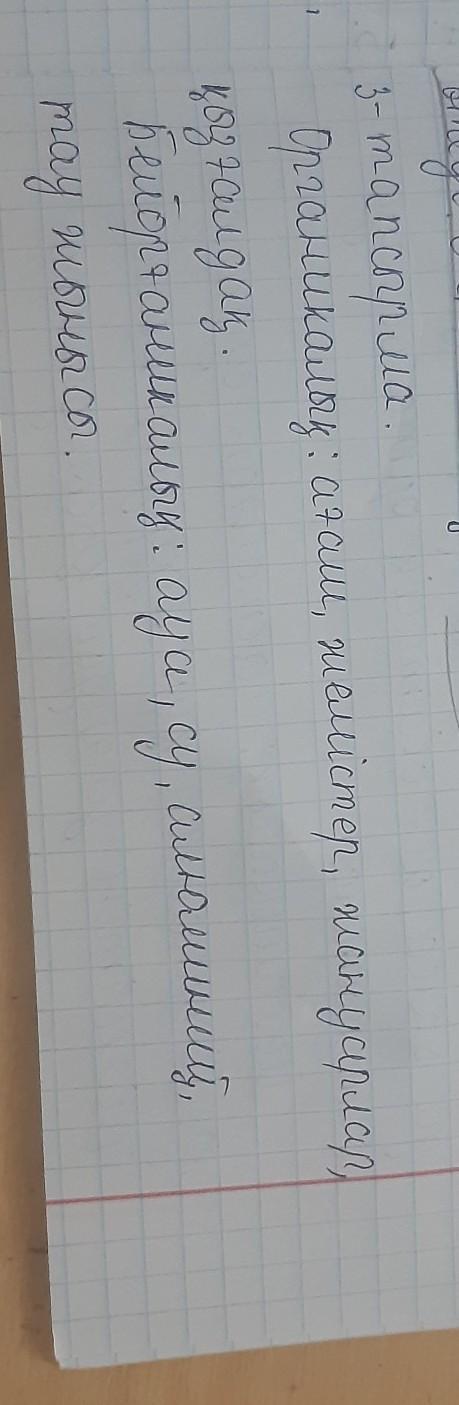 3-тапсырма.
Органикалық: ағаш, жемістер, жануарлар,
қызғалдақ.
Бейорганикалық: ауа, су, алюминий,
тау жынысы.